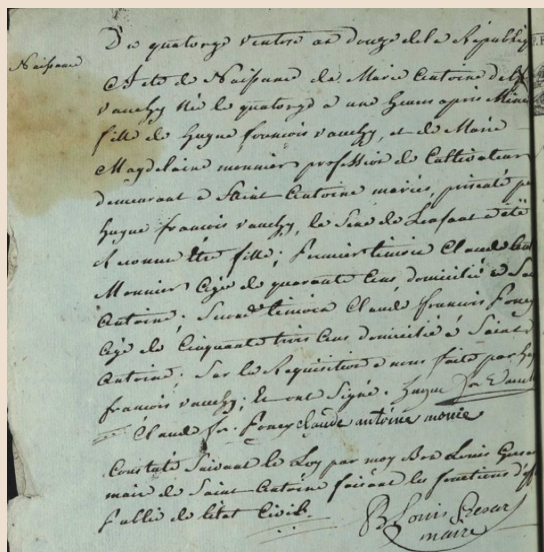 Du quatorze ventose an douze de la Republique
Naissance
Acte de Naissance de Marie Antoine
vauchy Née le quatorze a une heure apres Minuit
fille de hugue francois vauchy, et de Marie
Magdelaine monnier profession de Cultivateur
demeurant a Saint Antoine mariés, présenté par
hugue francois vauchy, le Sexe de Lenfant a été
reconnu être fille; Premier temoin Claude
Monnier Agé de quarante Ans, domicilié a
Antoine; Second temoin Claude francois
Agé de Cinquante trois Ans domicilié a Saint
Antoine; Sur la Requisition a nous faite par
francois vauchy; Et ont Signé. hugue
Claude fr. claude antoine monie
Constaté Suivant la Loy par moy Louis
maire de Saint Antoine faisant les fonctions
Public de létat Civil.
B Louis
maire